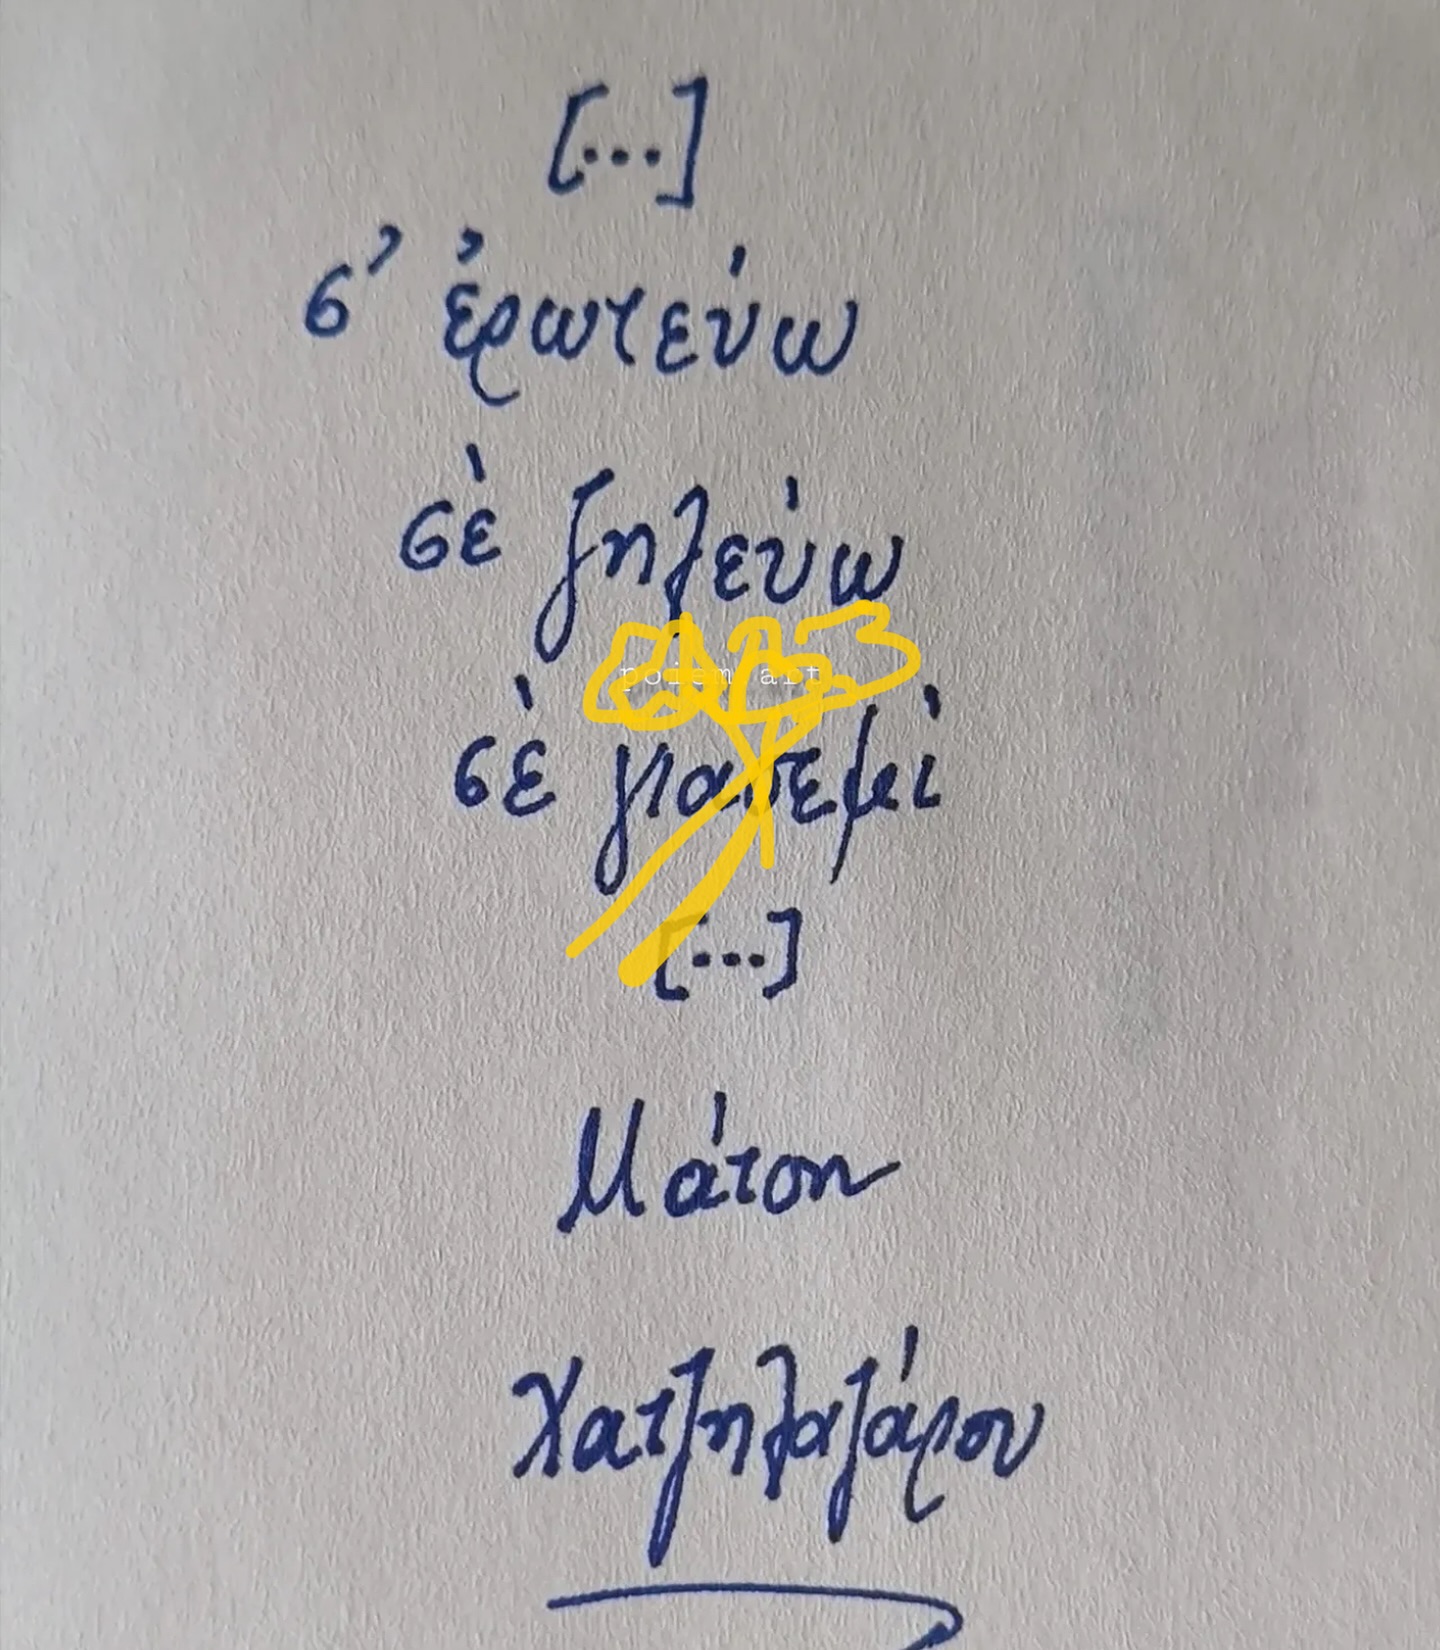 [...]
σ' ἐρωτεύω
σὲ ζηλεύω
poiem art
σὲ γιασεμὶ
[...]
Μάτση
Χατζηλαζάρου